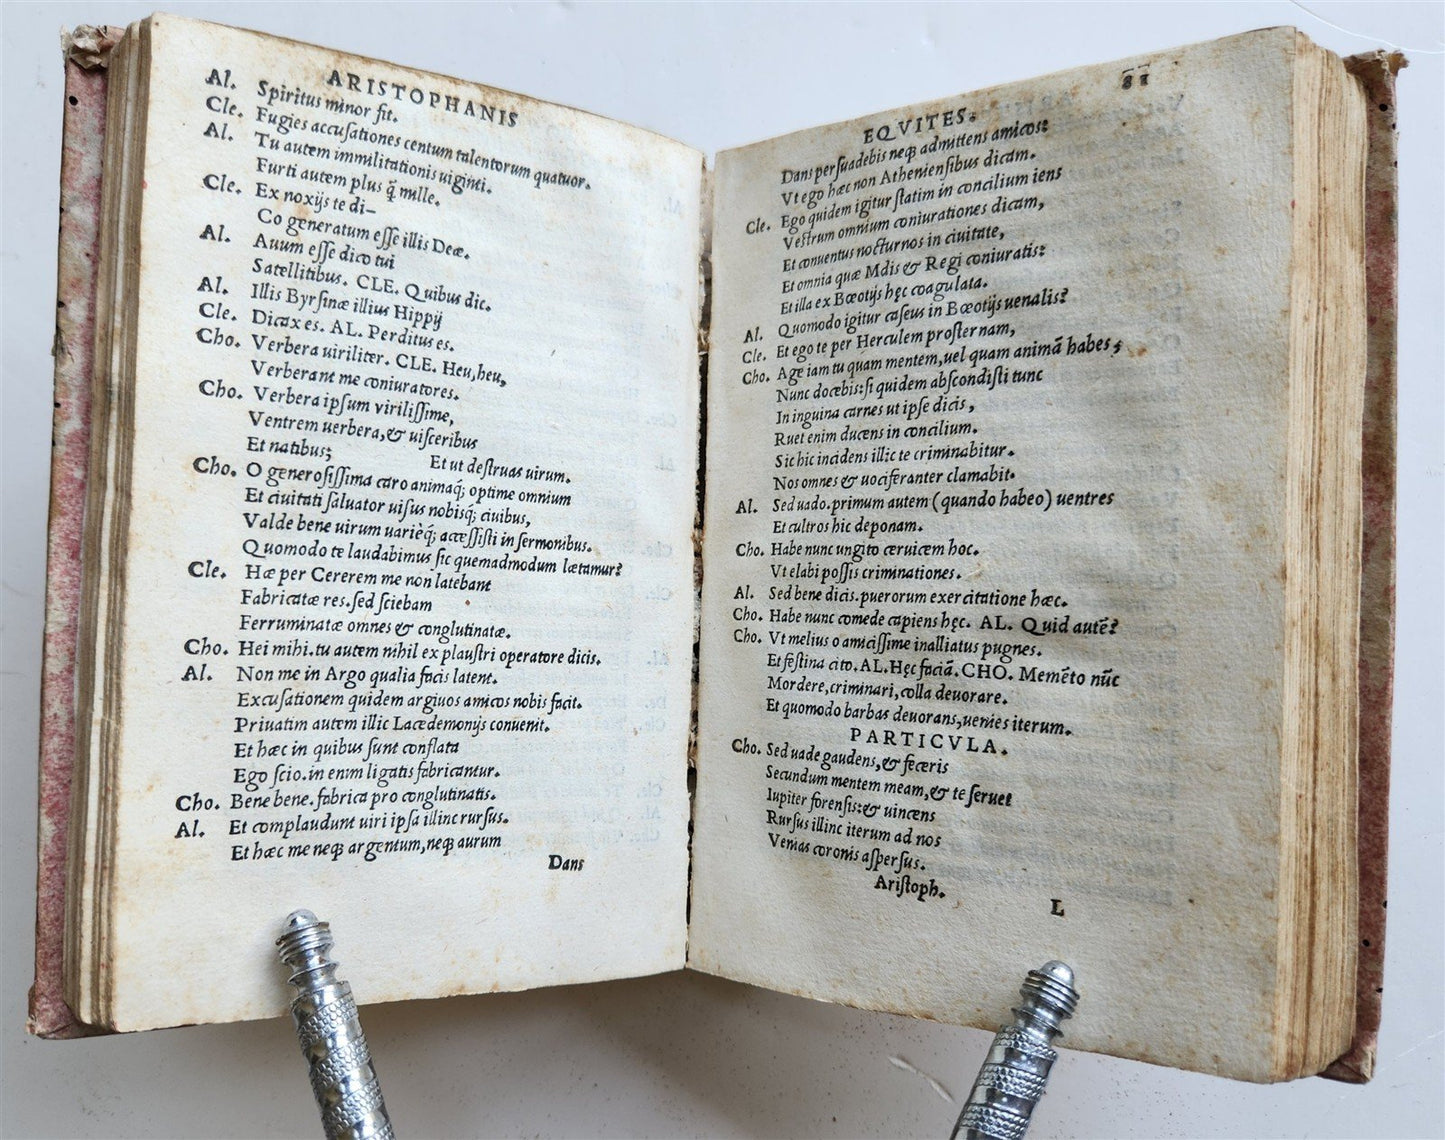 ARISTOPHANIS
Al. Spiritus minor fit.
Cle. Fugies accusationes centum talentorum quatuor.
Al. Tu autem immilitationis uiginti.
Furti autem plus q̃ mille.
Cle. Ex noxijs te di-
Co generatum esse illis Deæ.
Al. Auum esse dico tui
Satellitibus. CLE. Quibus dic.
Al. Illis Byrsinæ illius Hippij
Cle. Dicax es. AL. Perditus es.
Cho. Verbera uiriliter. CLE. Heu, heu,
Verberant me coniuratores.
Cho. Verbera ipsum virilissime,
Ventrem uerbera, & uisceribus
Et natibus; Et ut destruas uirum.
Cho. O generosissima caro animaq; optime omnium
Et ciuitati saluator uisus nobisq; ciuibus,
Valde bene uirum uarieq; accessisti in sermonibus.
Quomodo te laudabimus sic quemadmodum lætamur?
Cle. Hæ per Cererem me non latebant
Fabricatæ res. sed sciebam
Ferruminatæ omnes & conglutinatæ.
Cho. Hei mihi. tu autem nihil ex plaustri operatore dicis.
Al. Non me in Argo qualia facis latent.
Excusationem quidem argiuos amicos nobis facit.
Priuatim autem illic Lacedemonijs conuenit.
Et hæc in quibus sunt conflata
Ego scio. in enim ligatis fabricantur.
Cho. Bene bene. fabrica pro conglutinatis.
Al. Et complaudunt uiri ipsa illinc rursus.
Et hæc me neq; argentum, neq; aurum
Dans
EQVITES. 81
Dans persuadebis neq; admittens amicos:
Vt ego hæc non Atheniensibus dicam.
Cle. Ego quidem igitur statim in concilium iens
Vestrum omnium coniurationes dicam,
Et conuentus nocturnos in ciuitate,
Et omnia quæ Mdis & Regi coniuratis:
Et illa ex Bœotijs hęc coagulata.
Al. Quomodo igitur caseus in Bœotijs uenalis?
Cle. Et ego te per Herculem prosternam,
Cho. Age iam tu quam mentem, uel quam animã habes;
Nunc docebis: si quidem abscondisti tunc
In inguina carnes ut ipse dicis,
Ruet enim ducens in concilium.
Sic hic incidens illic te criminabitur.
Nos omnes & uociferanter clamabit.
Al. Sed uado. primum autem (quando habeo) uentres
Et cultros hic deponam.
Cho. Habe nunc ungito ceruicem hoc.
Vt elabi possis criminationes.
Al. Sed bene dicis. puerorum exercitatione hæc.
Cho. Habe nunc comede capiens hęc. AL. Quid autē?
Cho. Vt melius o amicissime inalliatus pugnes.
Et festina cito. AL. Hęc faciã. CHO. Memēto nũc
Mordere, criminari, colla deuorare.
Et quomodo barbas deuorans, uenies iterum.
PARTICVLA.
Cho. Sed uade gaudens, & feceris
Secundum mentem meam, & te seruet
Iupiter forensis: & uincens
Rursus illinc iterum ad nos
Venias coronis aspersus.
Aristoph. L